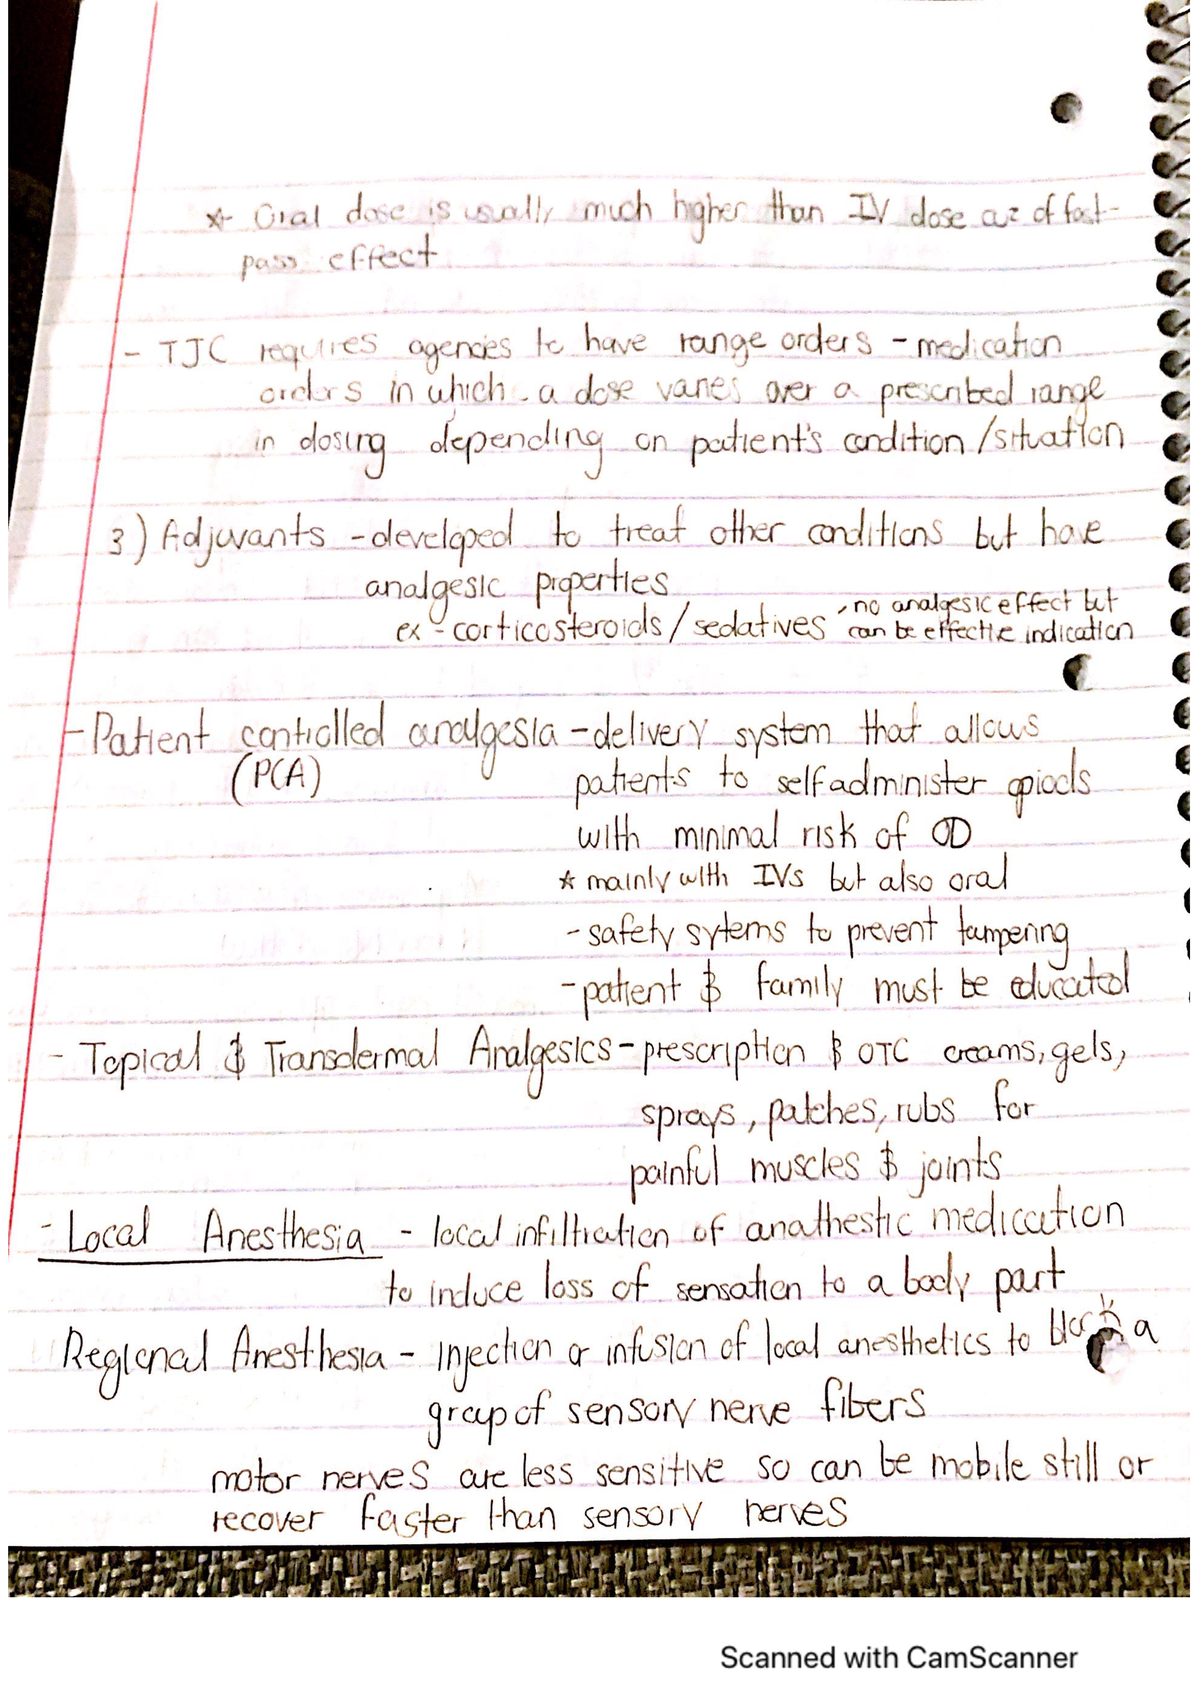 * Oral dose is usually much higher than IV dose cuz of fast-
pass effect
- TJC requires agencies to have range orders - medication
orders in which a dose varies over a prescribed range
in dosing depending on patient's condition/situation
3) Adjuvants - developed to treat other conditions but have
analgesic properties
ex - corticosteroids/sedatives
- no analgesic effect but
can be effective indication
- Patient controlled analgesia - delivery system that allows
(PCA)
patients to self administer opiods
with minimal risk of OD
* mainly with IVs but also oral
- safety sytems to prevent tampering
- patient & family must be educated
- Topical & Transdermal Analgesics - prescription & OTC creams, gels,
sprays, patches, rubs for
painful muscles & joints
- Local Anesthesia - local infiltration of anathestic medication
to induce loss of sensation to a body part
Regional Anesthesia - injection or infusion of local anesthetics to block a
group of sensory nerve fibers
motor nerves are less sensitive so can be mobile still or
recover faster than sensory nerves
Scanned with CamScanner